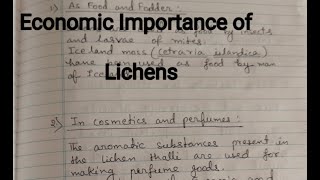 1) As Food and Fodder:
Economic Importance of
as food by insects
and larvae of mites.
Iceland moss (Cetraria islandica)
have been used as food by man
of Ice
Lichens
2) In cosmetics and perfumes:
The aromatic substances present in
the lichen thalli are used for
making perfume goods.
and